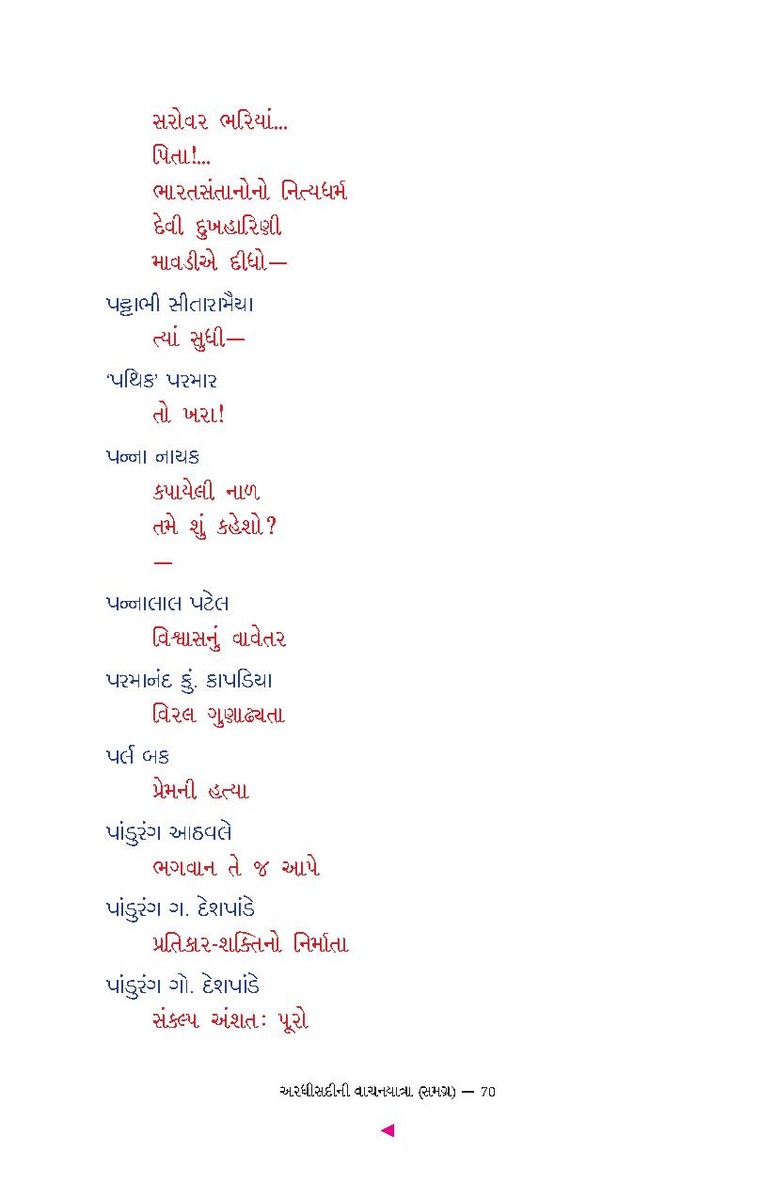 સરોવર ભરિયાં...
પિતા!...
ભારતસંતાનોનો નિત્યધર્મ
દેવી દુખહારિણી
માવડીએ દીધો—
પટ્ટાભી સીતારામૈયા
ત્યાં સુધી—
‘પથિક’ પરમાર
તો ખરા!
પન્ના નાયક
કપાયેલી નાળ
તમે શું કહેશો?
—
પન્નાલાલ પટેલ
વિશ્વાસનું વાવેતર
પરમાનંદ કું. કાપડિયા
વિરલ ગુણાઢ્યતા
પર્લ બક
પ્રેમની હત્યા
પાંડુરંગ આઠવલે
ભગવાન તે જ આપે
પાંડુરંગ ગ. દેશપાંડે
પ્રતિકાર-શક્તિનો નિર્માતા
પાંડુરંગ ગો. દેશપાંડે
સંકલ્પ અંશતઃ પૂરો
અરધીસદીની વાચનયાત્રા (સમગ્ર) — 70